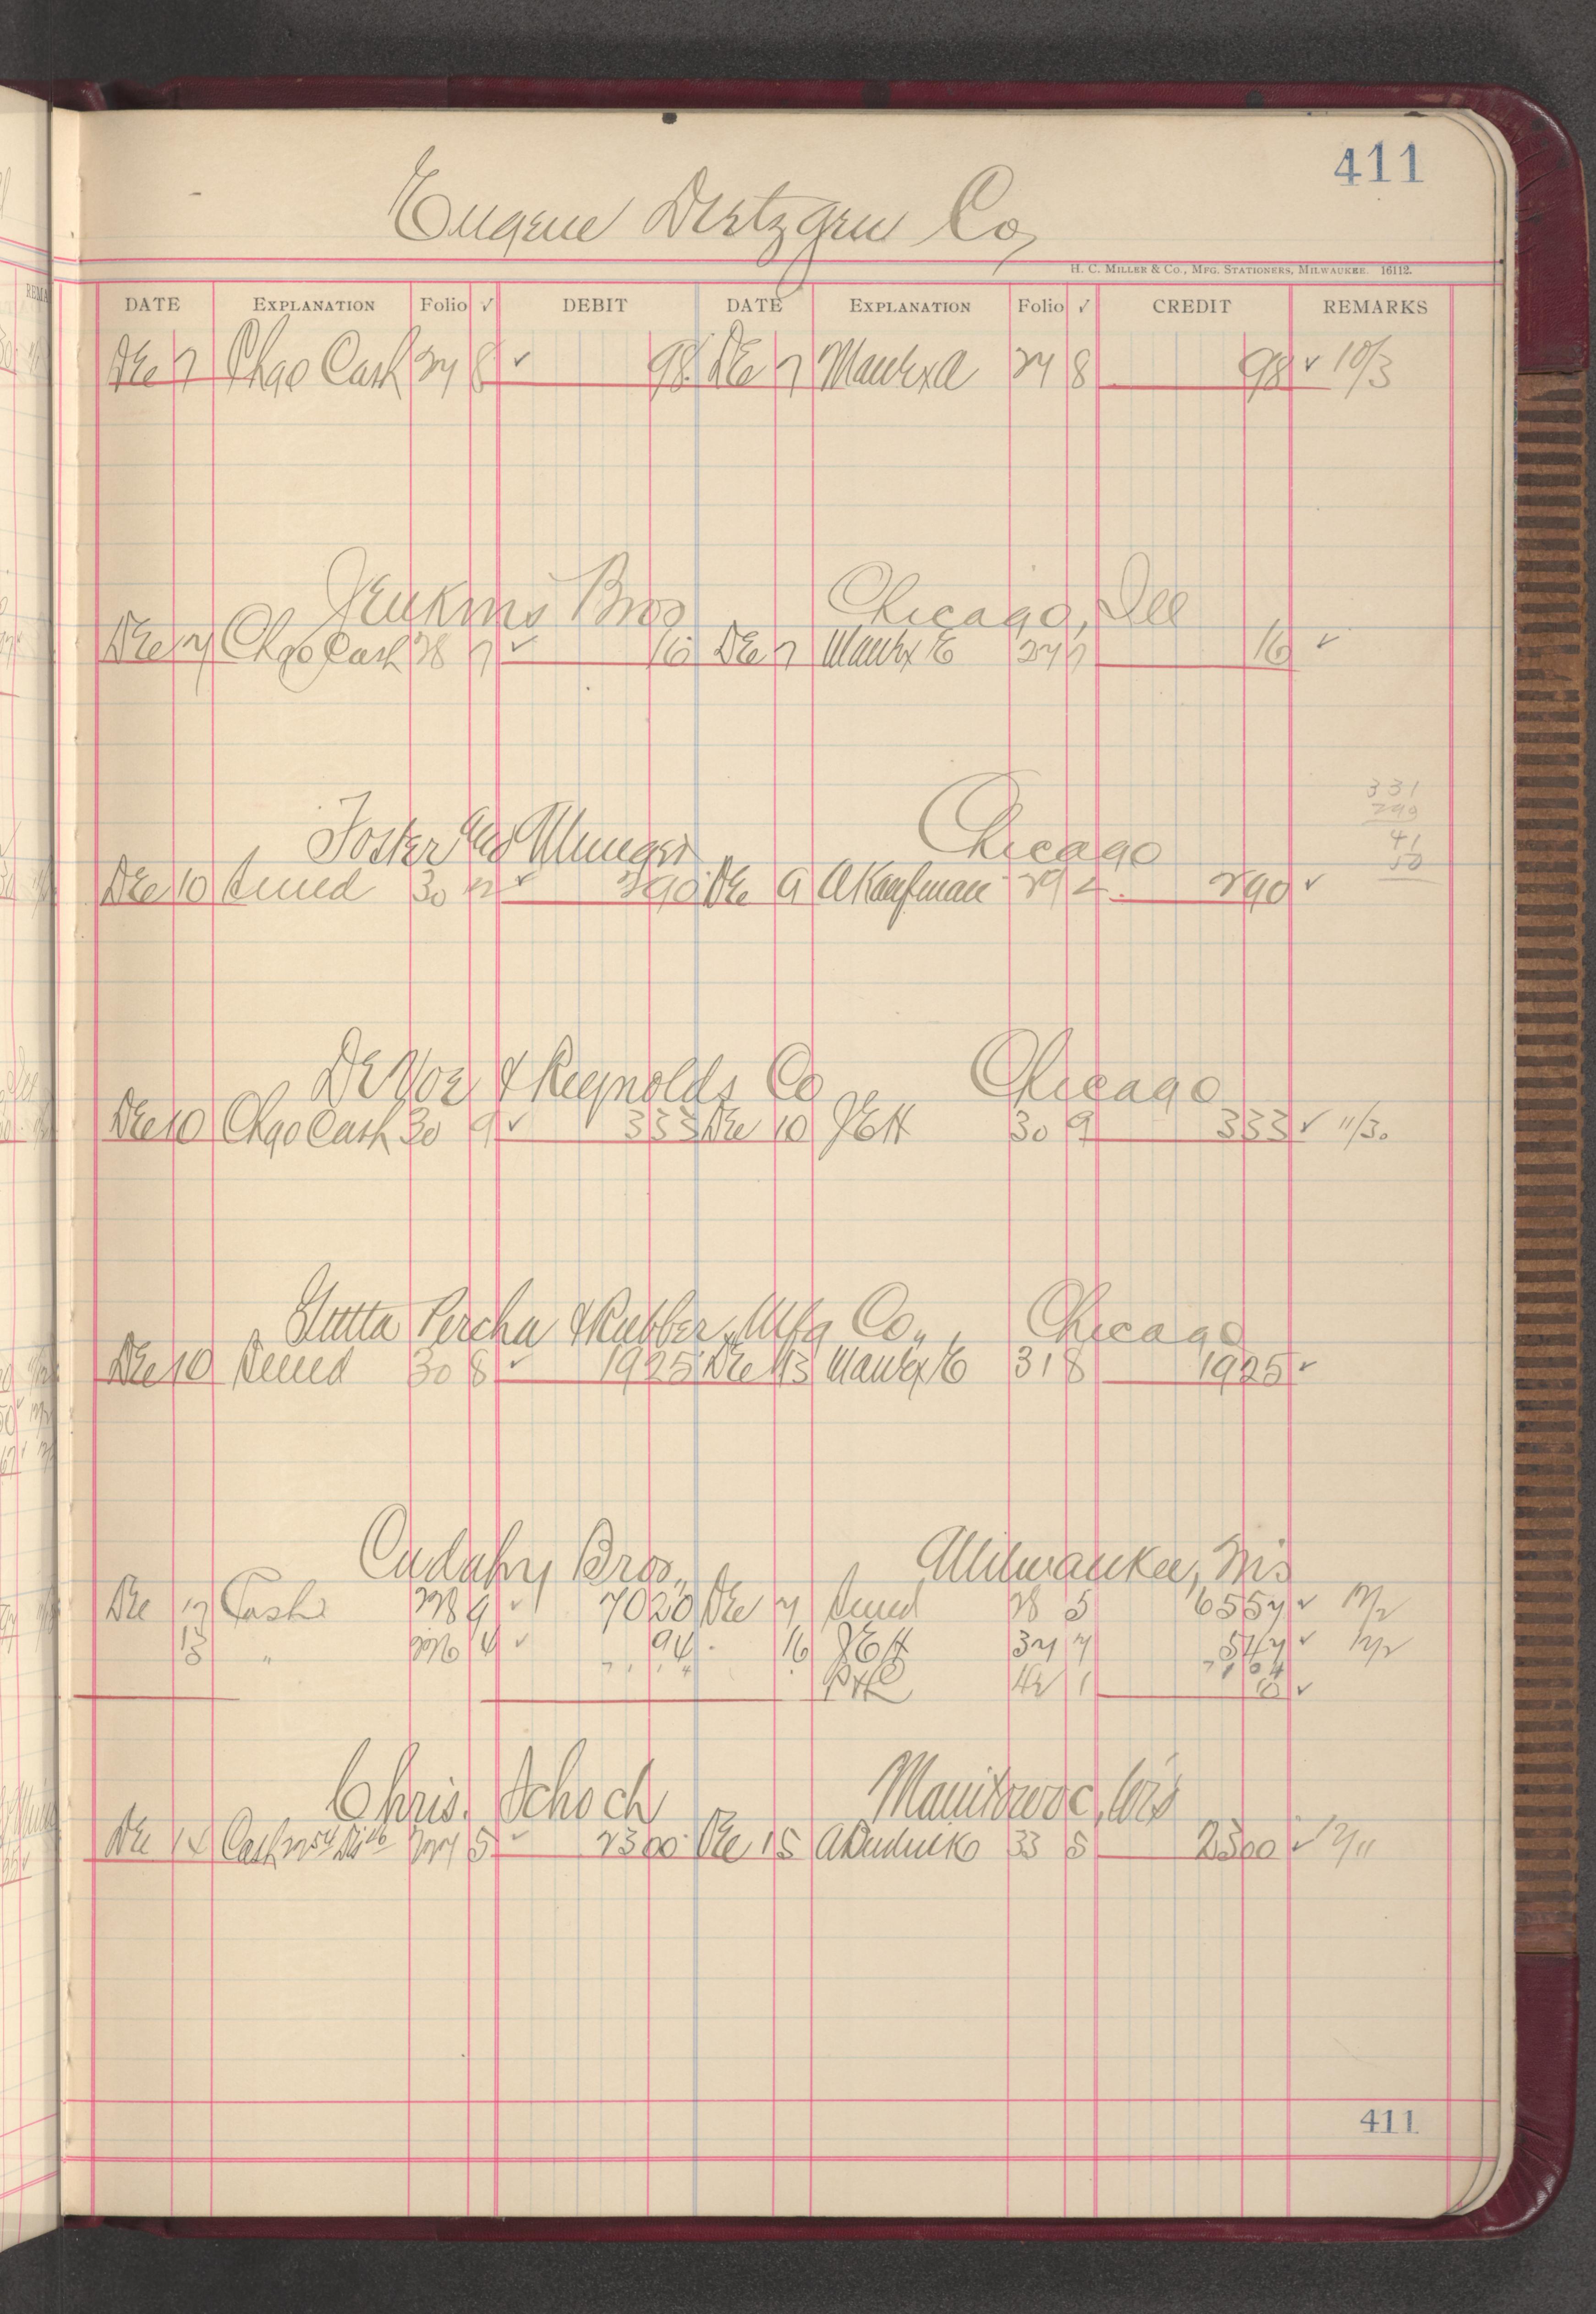 411
Eugene Dietzgen Co,
H. C. MILLER & CO., MFG. STATIONERS, MILWAUKEE. 16112.
DATE EXPLANATION Folio ✓ DEBIT DATE EXPLANATION Folio ✓ CREDIT REMARKS
Dec 7 Chgo Cash 27 8 ✓ 98 Dec 7 27 8 98 ✓ 10/3
Jenkins Bros Chicago, Ill
Dec 7 Chgo Cash 28 7 ✓ 16 Dec 7 27 7 16 ✓
331
290
41
50
Foster and Munger Chicago
Dec 10 30 ✓ 290 Dec 9 A Kaufman 29 2 290 ✓
DeVoe & Reynolds Co Chicago
Dec 10 Chgo Cash 30 9 ✓ 333 Dec 10 JEH 30 9 333 ✓ 11/30
Gutta Percha & Rubber Mfg Co., Chicago
Dec 10 30 8 ✓ 1925 Dec 13 31 8 1925 ✓
Cudahy Bros., Milwaukee, Wis
Dec 17 Cash 9 ✓ 7020 Dec 7 28 5 6557 ✓
18 " 4 ✓ 94 16 JEH 37 7 547 ✓
1 10 ✓
Chris. Schoch Manitowoc, Wis
Dec 14 Cash 5 ✓ 2300 Dec 15 33 5 2300 ✓ 12/11
411